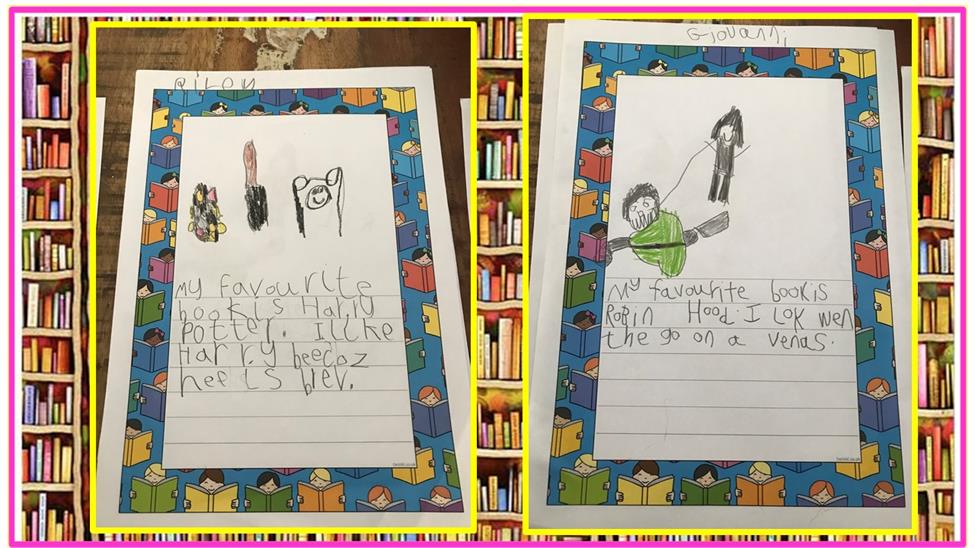 Riley
My favourite
book is Harry
Potter. I like
Harry beecoz
hee is blev.
Giovanni
My favourite book is
Robin Hood. I Lok wen
the go on a venas.